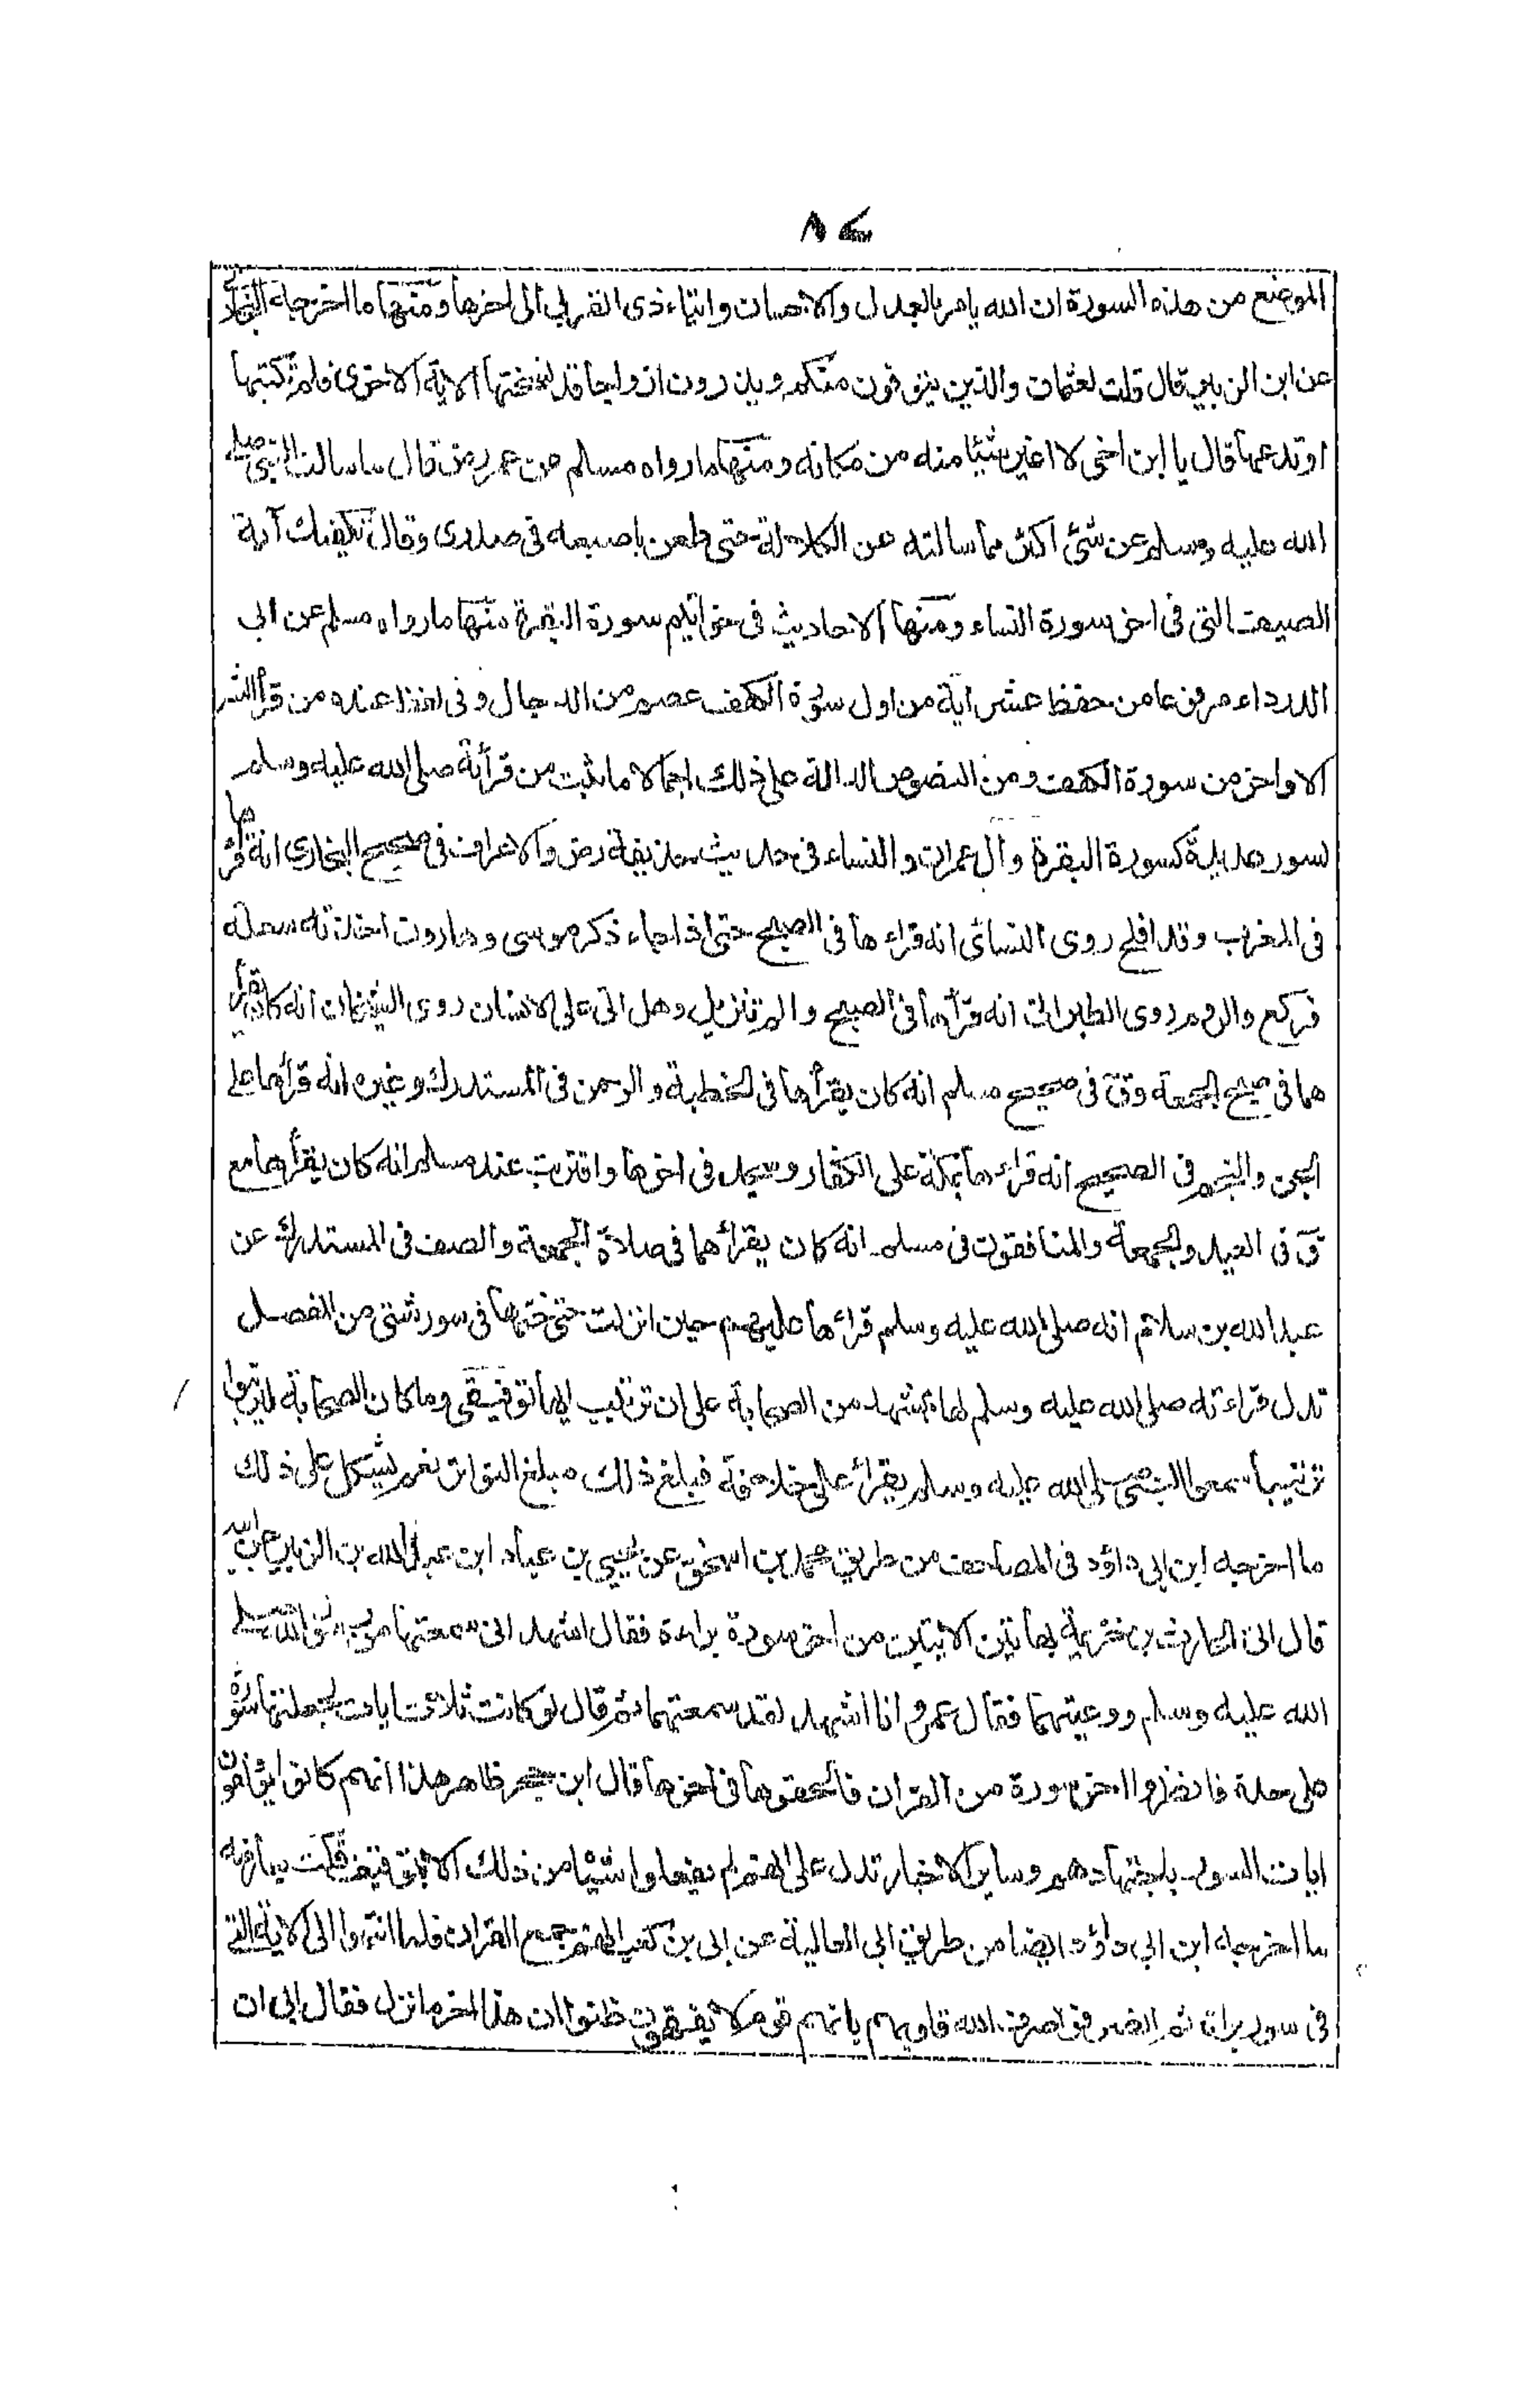 ٨٤
الموضع من هذه السورة ان الله يامر بالعدل والاحسان وايتاء ذى القربى الى اخرها ومنها ما اخرجه البخارى
عن ابن الزبير قال قلت لعثمان والذين يتوفون منكم ويذرون ازواجا قد نسختها الاية الاخرى فلم تكتبها
او تدعها قال يا ابن اخى لا اغير شيئا منه من مكانه ومنها ما رواه مسلم عن عمر رض قال ما سالت النبى صلى
الله عليه وسلم عن شئ اكثر مما سالته عن الكلالة حتى طعن باصبعه فى صدرى وقال تكفيك آية
الصيف التى فى اخر سورة النساء ومنها الاحاديث فى خواتيم سورة البقرة منها ما رواه مسلم عن ابى
الدرداء مرفوعا من حفظ عشر اية من اول سورة الكهف عصم من الدجال وفى لفظ عنده من قرأ العشر
الاواخر من سورة الكهف ومن النصوص الدالة على ذلك اجمالا ما ثبت من قرأية صلى الله عليه وسلم
لسور عديدة كسورة البقرة وآل عمران والنساء فى حديث حذيفة رض والاعراف فى صحيح البخارى انه قرأها
فى المغرب وقد افلح روى النسائى انه قراءها فى الصبح حتى اذا جاء ذكر موسى وهارون اخذته سعلة
فركع والروم روى الطبرانى انه قرأها فى الصبح والم تنزيل وهل اتى على الانسان روى الشيخان انه كان يقرأ
هما فى صبح الجمعة وق فى صحيح مسلم انه كان يقرأها فى الخطبة والرحمن فى المستدرك وغيره انه قرأها على
الجن والنجم فى الصحيح انه قراءها بمكة على الكفار وسجد فى اخرها واقتربت عند مسلم انه كان يقرأها مع
ق فى العيد والجمعة والمنافقون فى مسلم انه كان يقرأهما فى صلاة الجمعة والصف فى المستدرك عن
عبد الله بن سلام انه صلى الله عليه وسلم قراءها عليهم حين انزلت حتى ختمها فى سور شتى من المفصل
تدل قراءته صلى الله عليه وسلم لها بمشهد من الصحابة على ان ترتيب ايها توقيفى وما كان الصحابة ليرتبوا
ترتيبا سمعوا النبى صلى الله عليه وسلم يقرأ على خلافه فبلغ ذلك مبلغ التواتر نعم يشكل على ذلك
ما اخرجه ابن ابى داؤد فى المصاحف من طريق محمد بن اسحق عن يحيى بن عباد ابن عبد الله بن الزبير عن ابيه
قال اتى الحارث بن خزيمة بهاتين الايتين من اخر سورة براءة فقال اشهد انى سمعتهما من رسول الله صلى
الله عليه وسلم ووعيتهما فقال عمر وانا اشهد لقد سمعتهما ثم قال لو كانت ثلاث ايات لجعلتها سورة
على حدة فانظروا اخر سورة من القران فالحقوها فى اخرها قال ابن حجر ظاهر هذا انهم كانوا يؤلفون
ايات السور باجتهادهم وساير الاخبار تدل على انهم لم يفعلوا شيئا من ذلك الا بتوقيف قلت يعارضه
ما اخرجه ابن ابى داؤد ايضا من طريق ابى العالية عن ابى بن كعب انهم جمع القران فلما انتهوا الى الاية التى
فى سور براة ثم انصرفوا صرف الله قلوبهم بانهم قوم لا يفقهون ظنوا ان هذا اخر ما نزل فقال ابى ان